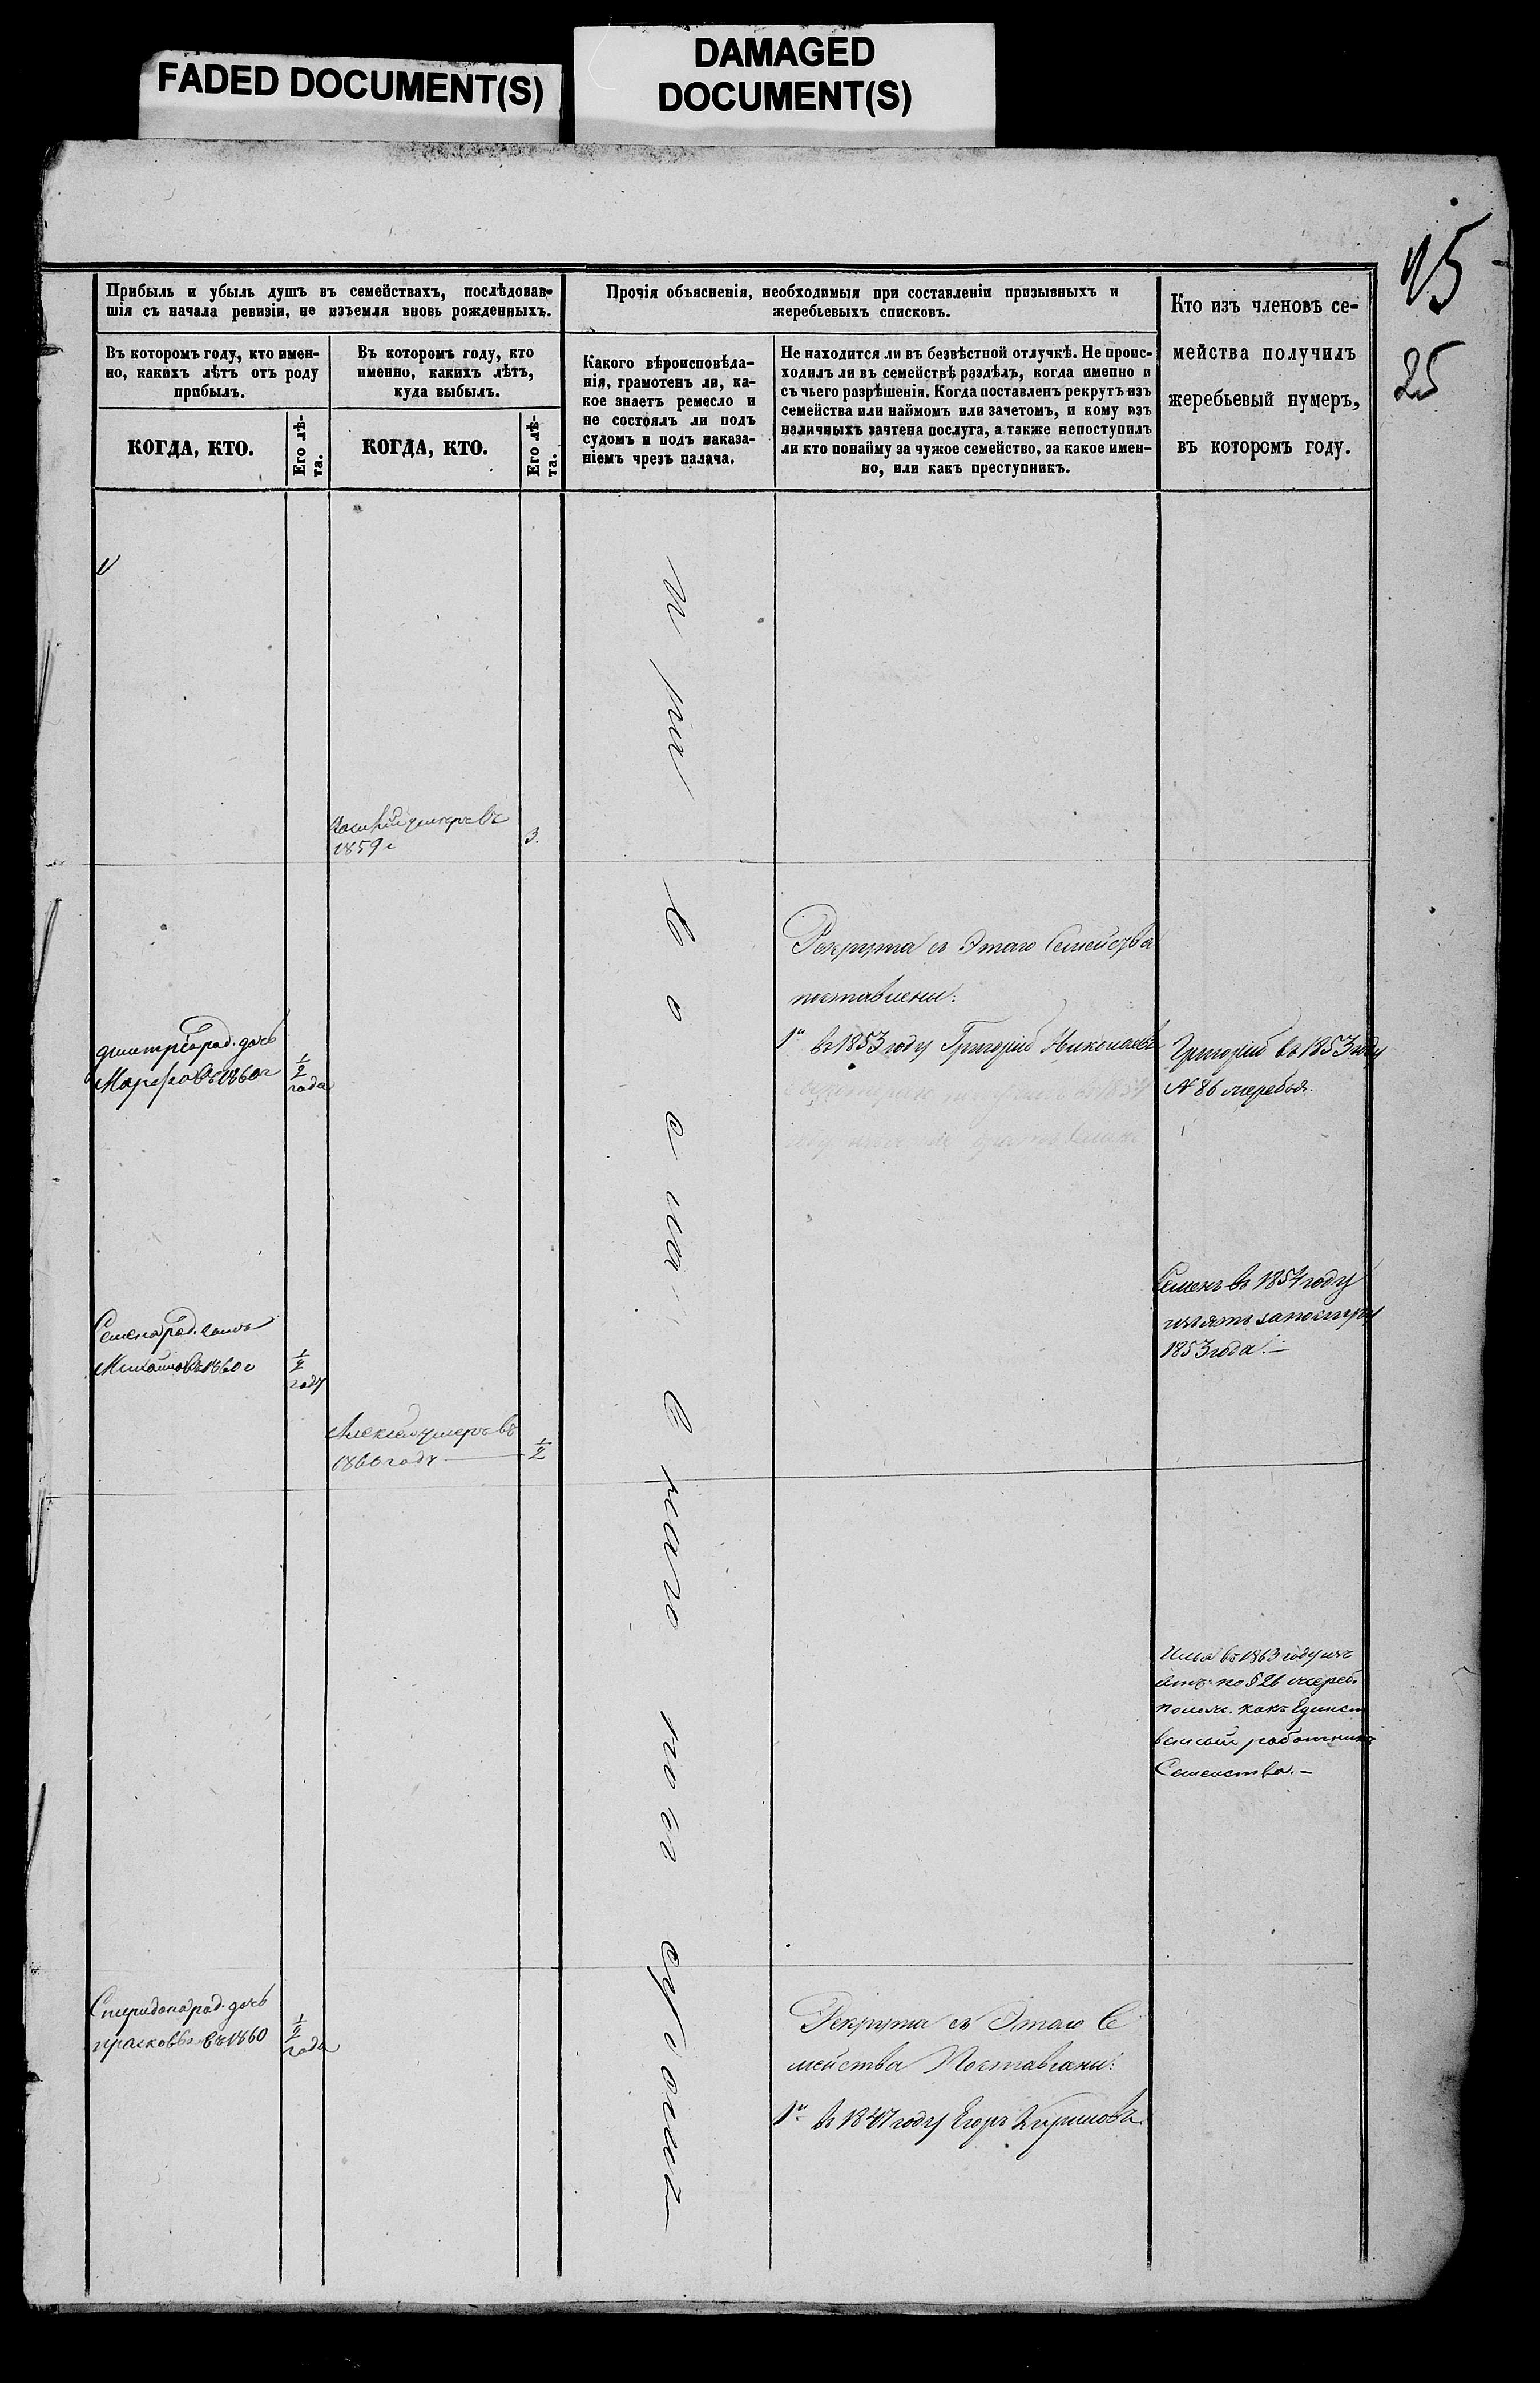 FADED DOCUMENT(S)
DAMAGED
DOCUMENT(S)
25
Прибыль и убыль душъ въ семействахъ, послѣдовав-
шія съ начала ревизіи, не изъемля вновь рожденныхъ.
Прочія объясненія, необходимыя при составленіи призывныхъ и
жеребьевыхъ списковъ.
Кто изъ членовъ се-
мейства получилъ
жеребьевый нумеръ,
въ которомъ году.
Въ которомъ году, кто имен-
но, какихъ лѣтъ отъ роду
прибылъ.
Въ которомъ году, кто
именно, какихъ лѣтъ,
куда выбылъ.
Какого вѣроисповѣда-
нія, грамотенъ ли, ка-
кое знаетъ ремесло и
не состоялъ ли подъ
судомъ и подъ наказа-
ніемъ чрезъ палача.
Не находится ли въ безвѣстной отлучкѣ. Не проис-
ходилъ ли въ семействѣ раздѣлъ, когда именно и
съ чьего разрѣшенія. Когда поставленъ рекрутъ изъ
семейства или наймомъ или зачетомъ, и кому изъ
наличныхъ зачтена послуга, а также непоступилъ
ли кто понайму за чужое семейство, за какое имен-
но, или какъ преступникъ.
КОГДА, КТО.
Его лѣ-
та.
КОГДА, КТО.
Его лѣ-
та.
умеръ въ
1859 г
3.
Рекрута съ Этаго Семейства
поставлены:
1й въ 1853 году Григорій Николаевъ
Григорій въ 1853 году
№ 86 жеребья.
Дмитрія род. дочь
Марфа въ 1860 г
1/2
года
Семенъ въ 1854 году
изъятъ за послугу
1853 года.
Семена род. сынъ
Михаилъ въ 1860 г
1/2
году
Алексей умеръ въ
1860 году
1/2
Илья въ 1863 году изъ
по § 26 жереб.
полож. какъ Единст
венный работникъ
Семейства.
Спиридона род. дочь
Прасковья въ 1860
1/2
года
Рекрута съ Этаго Се
мейства Поставлены:
1й въ 1847 году Егоръ